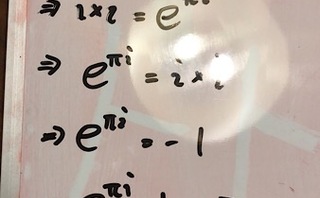 ⇒ i × i = e^{πi}
⇒ e^{πi} = i × i
⇒ e^{πi} = -1
e^{πi}